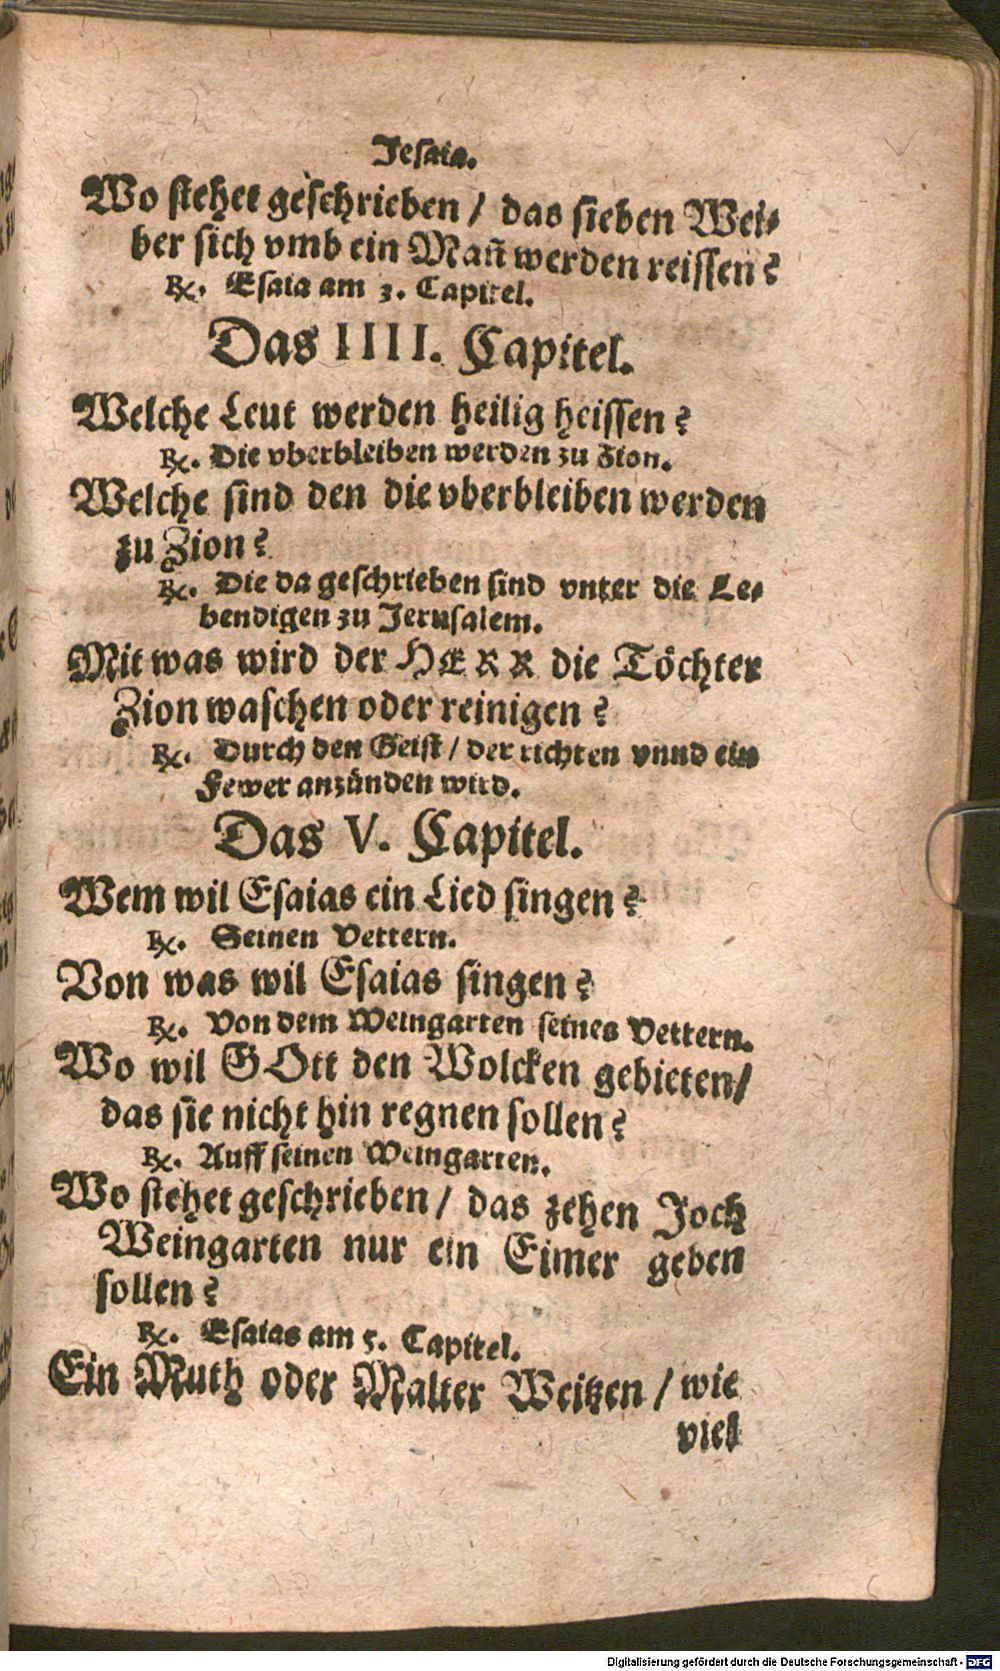 Jesaia.
Wo stehet geschrieben / das sieben Wei-
ber sich vmb ein Mañ werden reissen?
℞. Esaia am 3. Capitel.
Das IIII. Capitel.
Welche Leut werden heilig heissen?
℞. Die vberbleiben werden zu Zion.
Welche sind den die vberbleiben werden
zu Zion?
℞. Die da geschrieben sind vnter die Le-
bendigen zu Jerusalem.
Mit was wird der HERR die Töchter
Zion waschen oder reinigen?
℞. Durch den Geist / der richten vnnd ein
Fewer anzünden wird.
Das V. Capitel.
Wem wil Esaias ein Lied singen?
℞. Seinen Vettern.
Von was wil Esaias singen?
℞. Von dem Weingarten seines Vettern.
Wo wil GOtt den Wolcken gebieten/
das sie nicht hin regnen sollen?
℞. Auff seinen Weingarten.
Wo stehet geschrieben / das zehen Joch
Weingarten nur ein Eimer geben
sollen?
℞. Esaias am 5. Capitel.
Ein Muth oder Malter Weitzen / wie
viel
Digitalisierung gefördert durch die Deutsche Forschungsgemeinschaft - DFG